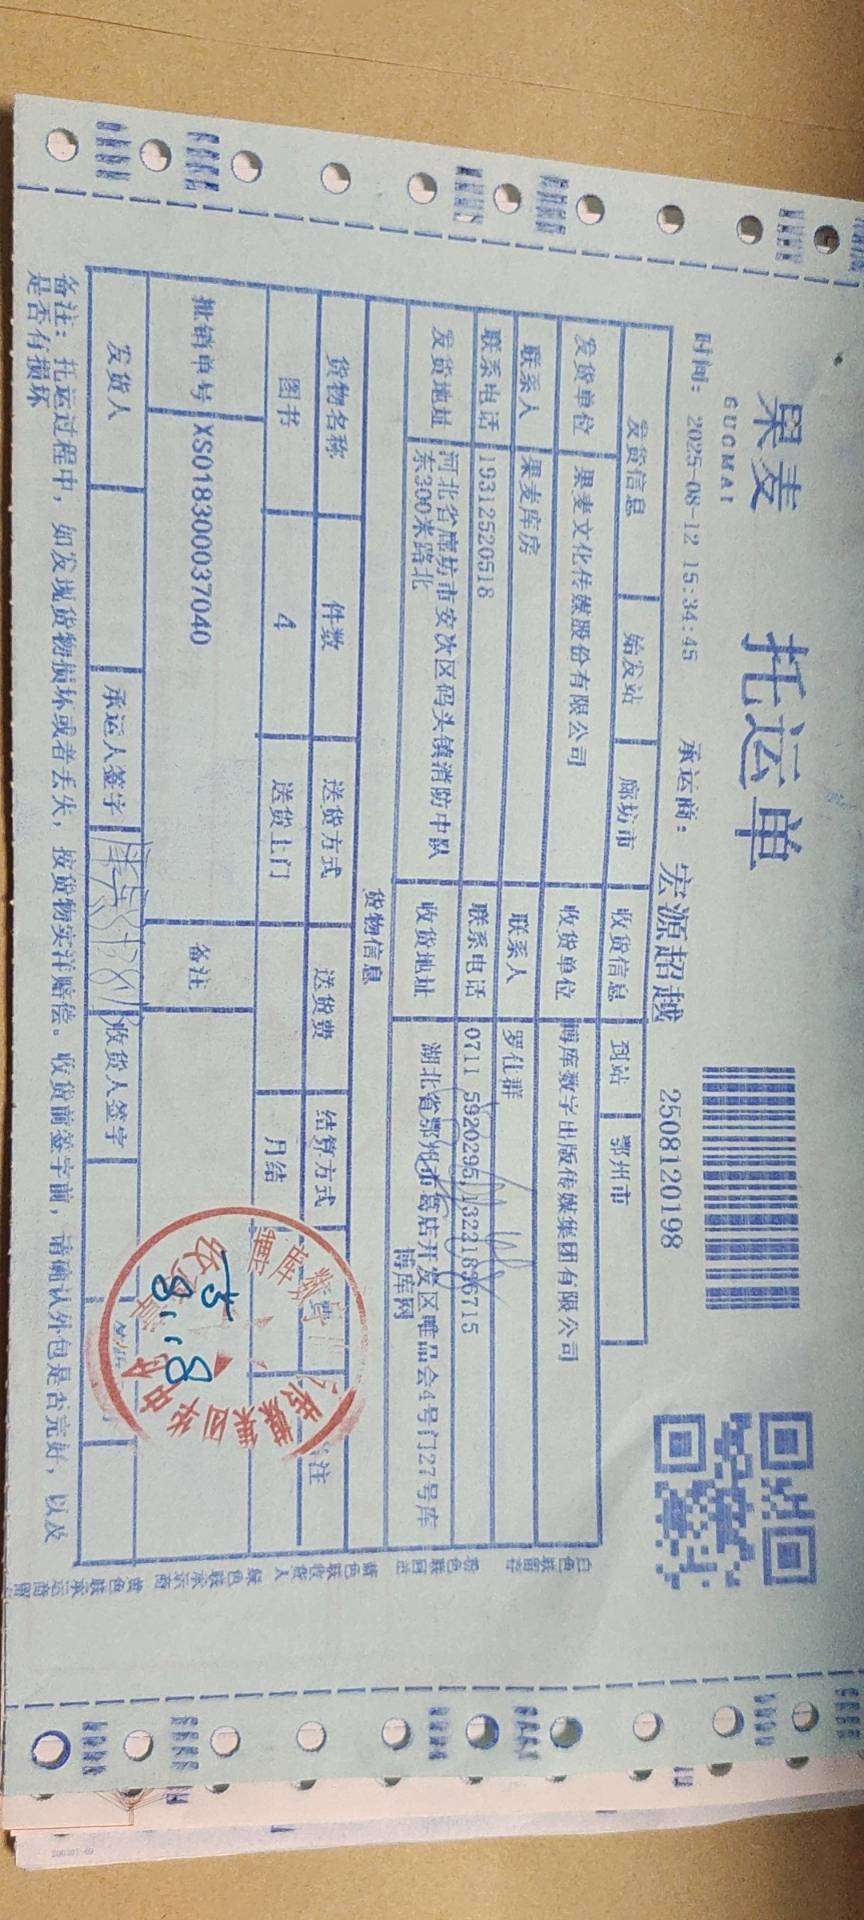 果麦
GUOMAI
托运单
时间: 2025-08-12 15:34:45 承运商: 宏源超越 2508120198
发货信息 始发站 廊坊市 收货信息 到站 鄂州市
发货单位 果麦文化传媒股份有限公司 收货单位 博库数字出版传媒集团有限公司
联系人 果麦库房 联系人 罗仕群
联系电话 19312520518 联系电话 0711 5920295/13221836715
发货地址 河北省廊坊市安次区码头镇消防中队东300米路北 收货地址 湖北省鄂州市葛店开发区唯品会4号门27号库博库网
货物信息
货物名称 件数 送货方式 送货费 结算方式 注
图书 4 送货上门 月结
批销单号 XS018300037040 备注
发货人 承运人签字 收货人签字
备注: 托运过程中, 如发现货物损坏或者丢失, 按货物实洋赔偿。收货前签字前, 请确认外包是否完好, 以及
是否有损坏
白色联留存 粉色联回进 蓝色联收货人 绿色联承运商 黄色联承运商留
8.18